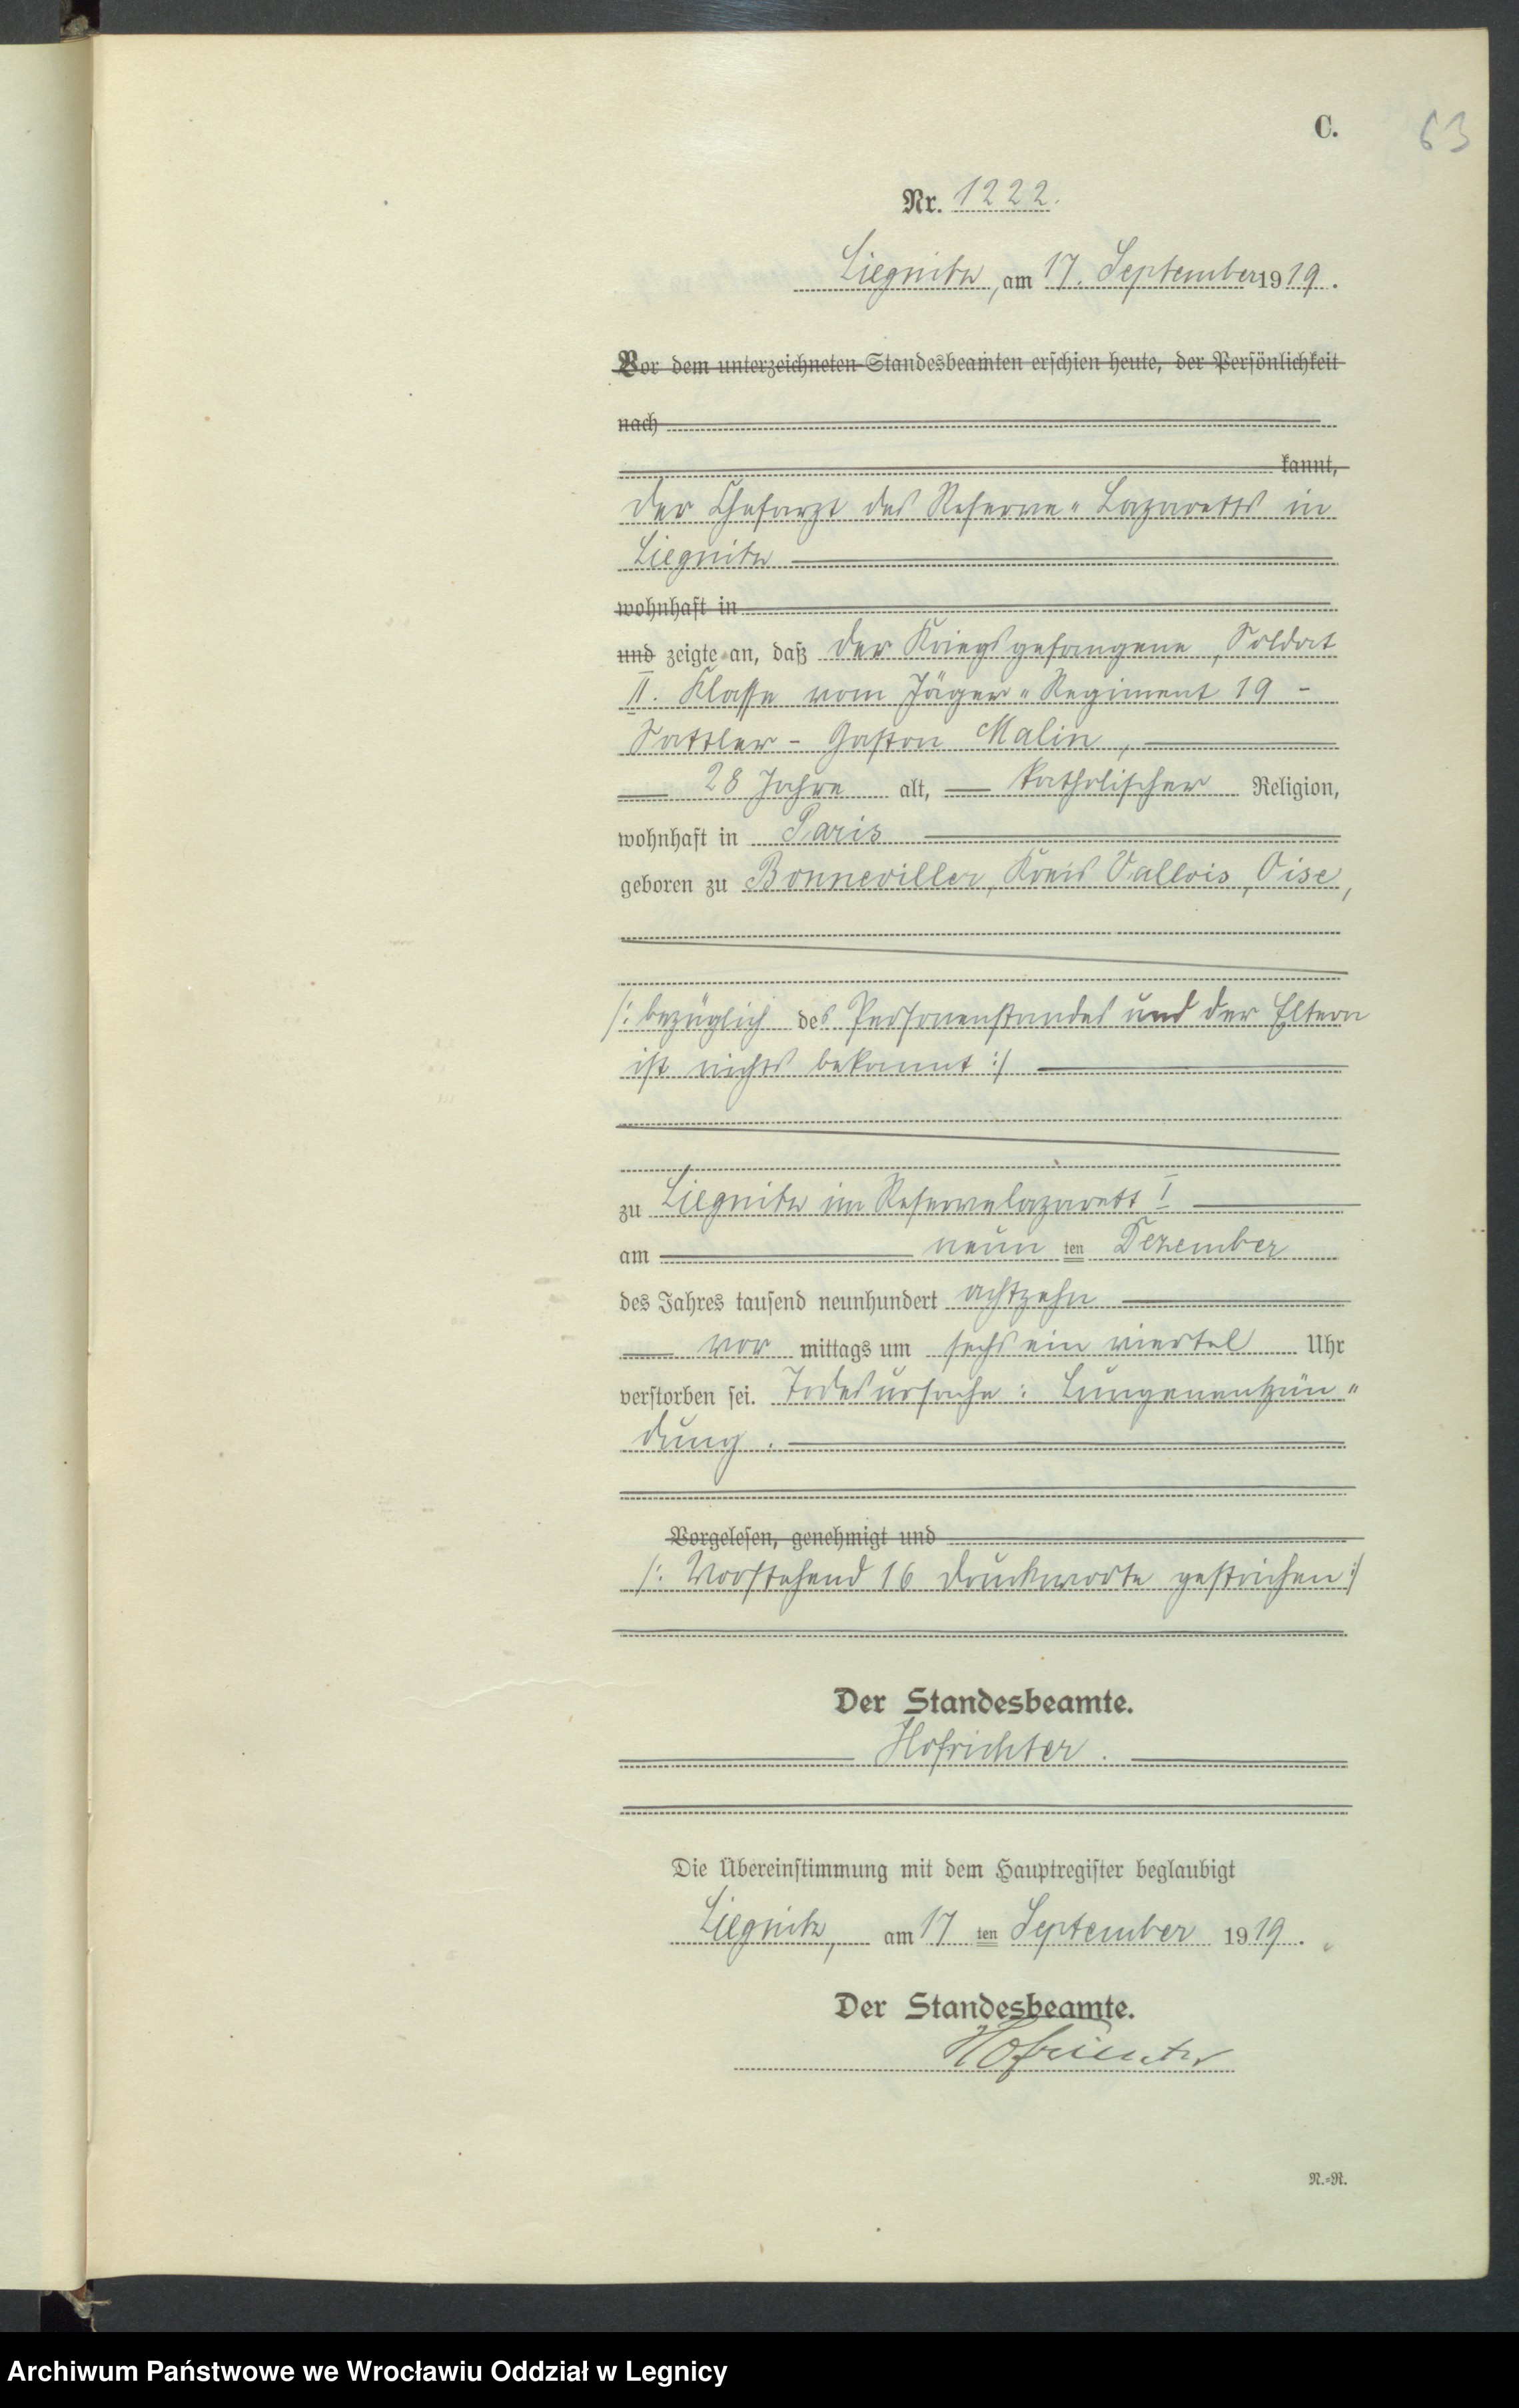 C.
63
Nr. 1222.
Liegnitz, am 17. September 1919.
Vor dem unterzeichneten Standesbeamten erschien heute, der Persönlichkeit
nach
kannt,
der Chefarzt des Reserve-Lazaretts in
Liegnitz
wohnhaft in
und zeigte an, daß der Kriegsgefangene, Soldat
II. Klasse vom Jäger-Regiment 19 -
Sattler - Gaston Malin,
28 Jahre alt, katholischer Religion,
wohnhaft in Paris
geboren zu Bonneviller, Kreis Vallois, Oise,
/: bezüglich des Personenstandes und der Eltern
ist nichts bekannt :/
zu Liegnitz im Reservelazarett I
am neun ten Dezember
des Jahres tausend neunhundert achtzehn
vor mittags um sechs ein viertel Uhr
verstorben sei. Todesursache: Lungenentzün-
dung.
Vorgelesen, genehmigt und
/: Vorstehend 16 Druckworte gestrichen :/
Der Standesbeamte.
Hofrichter.
Die Übereinstimmung mit dem Hauptregister beglaubigt
Liegnitz, am 17 ten September 1919.
Der Standesbeamte.
Hofrichter
N.-R.
Archiwum Państwowe we Wrocławiu Oddział w Legnicy